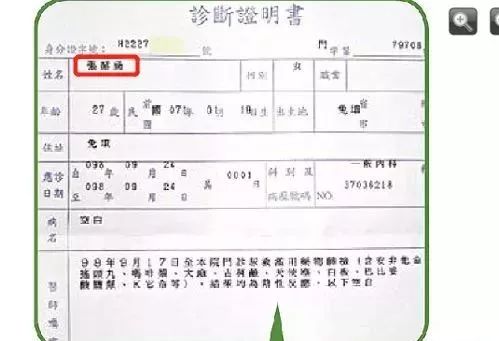 診斷證明書
身分證字號： H2227 號 門 診 79708
姓名 張 性別 女 職業
年齡 27歲 民國 07年 0 月 18日生 出生地 免填 省 市
住址 免填
應診日期 自 098 年 09 月 24 至 098 年 09 月 24 日 共 0001 日 科別及病歷號碼 一般內科 NO. 37036218
病名 空白
98年9月17日至本院門診尿液濫用藥物篩檢（含安非他命
搖頭丸、嗎啡類、大麻、古柯鹼、天使塵、白板、巴比妥
酸鹽類、K它命等），結果均為陰性反應，以下空白
醫師囑